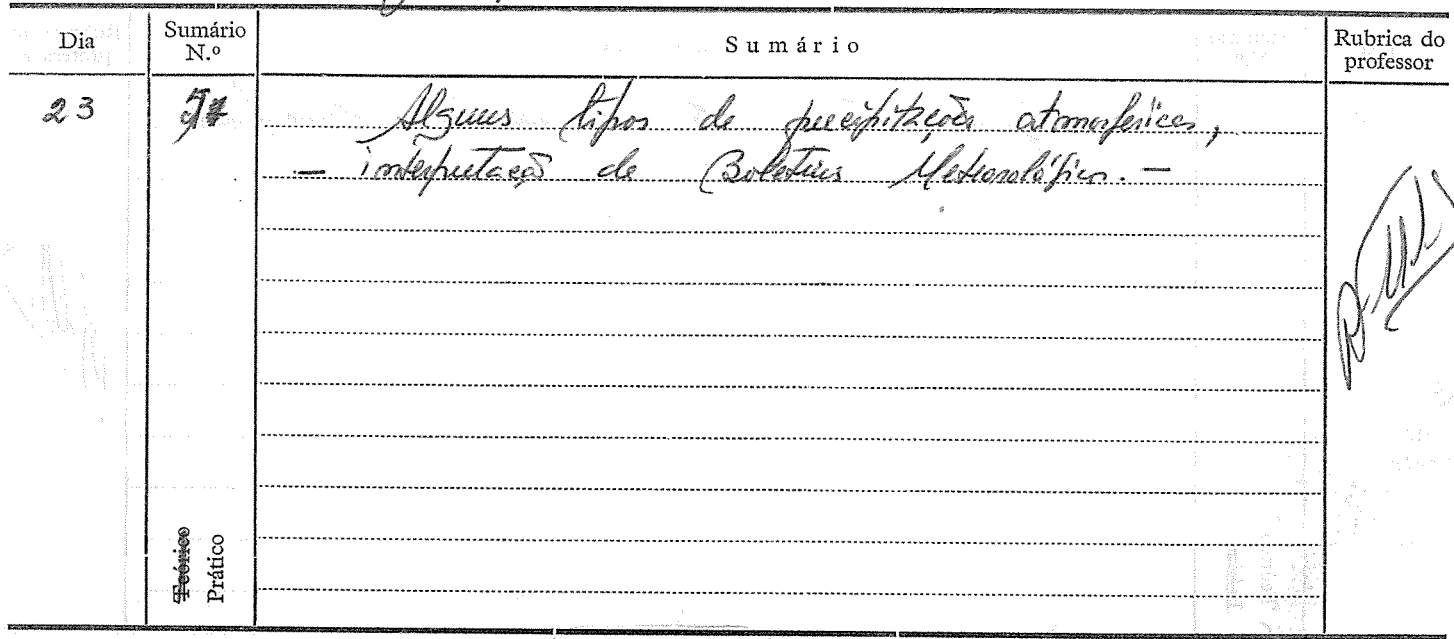 Dia
Sumário
N.º
Sumário
Rubrica do
professor
23
Alguns tipos de precipitações atmosféricas,
— interpretação de Boletins Meteorológicos. —
Teórico
Prático